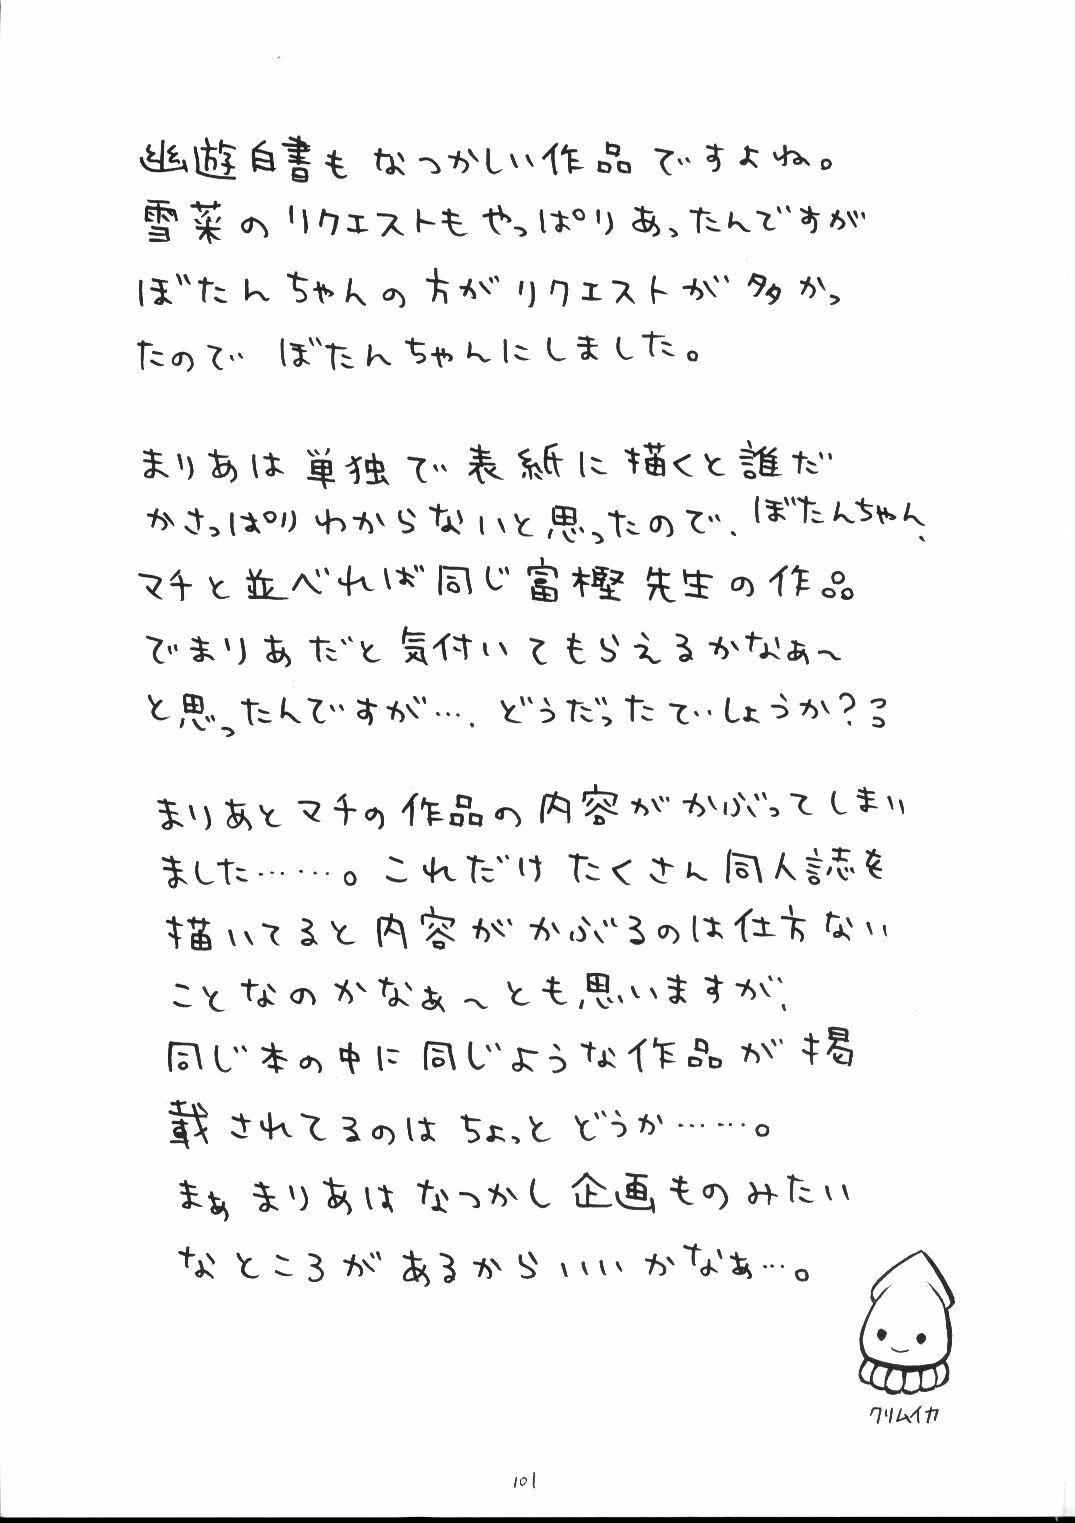 幽遊白書もなつかしい作品ですよね。
雪菜のリクエストもやっぱりあったんですが
ぼたんちゃんの方がリクエストが多かっ
たので ぼたんちゃんにしました。
まりあは単独で表紙に描くと誰だ
かさっぱりわからないと思ったので、ぼたんちゃん、
マチと並べれば同じ富樫先生の作品
でまりあだと気付いてもらえるかなぁ~
と思ったんですが…、どうだったでしょうか?
まりあとマチの作品の内容がかぶってしまい
ました……。これだけたくさん同人誌を
描いてると内容がかぶるのは仕方ない
ことなのかなぁ~とも思いますが、
同じ本の中に同じような作品が掲
載されてるのはちょっとどうか……。
まぁまりあはなつかし企画ものみたい
なところがあるからいいかなぁ…。
クリムイカ
101